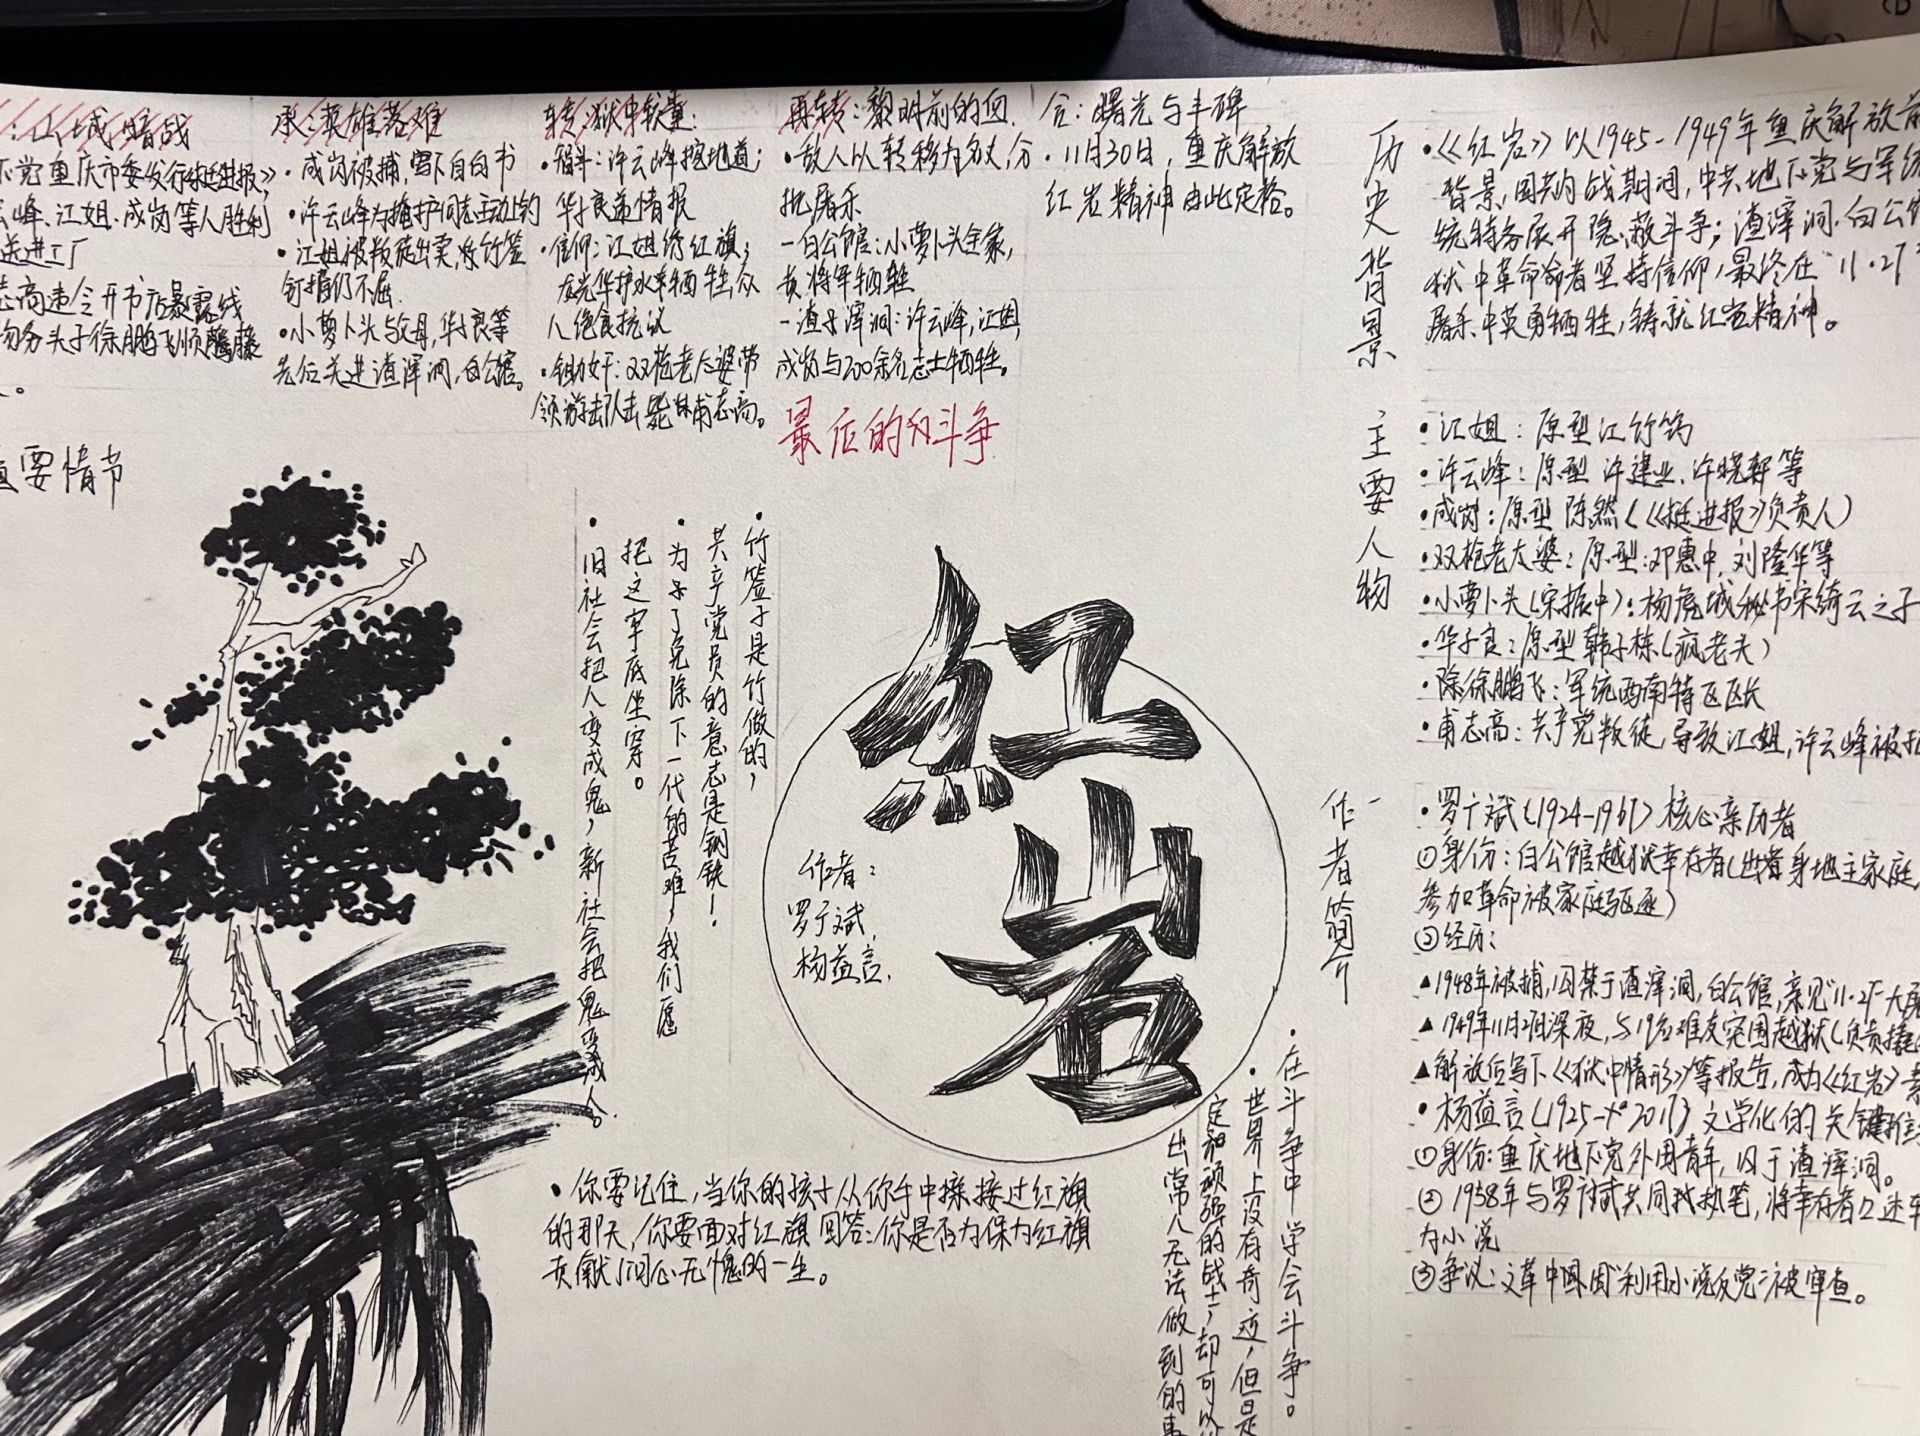 ：山城暗战
党重庆市委发行《挺进报》
云峰、江姐、成岗等人胜利
送进工厂
志高违令开书店暴露线
务头子徐鹏飞顺藤
承：英雄落难
・成岗被捕，写下自白书
・许云峰为掩护同志主动上钩
・江姐被叛徒出卖，竹签
钉指仍不屈
・小萝卜头与父母，华子良等
先后关进渣滓洞，白公馆。
转：狱中较量：
・智斗：许云峰挖地道；
华子良递情报
・信仰：江姐绣红旗；
龙光华护水牺牲，众
人绝食抗议
・锄奸：双枪老太婆带
领游击队击毙甫志高。
再转：黎明前的血
・敌人以转移为名义，分
批屠杀
—白公馆：小萝卜头全家，
黄将军牺牲
—渣子滓洞：许云峰，江姐，
成岗与200余名志士牺牲。
最后的斗争
合：曙光与丰碑
・11月30日，重庆解放
红岩精神由此定格。
重要情节
历史背景
・《红岩》以1945-1949年重庆解放前
背景，国共内战期间，中共地下党与军统
统特务展开隐蔽斗争；渣滓洞、白公馆
狱中革命者坚持信仰，最终在“11·27
屠杀中英勇牺牲，铸就红岩精神。
主要人物
・江姐：原型江竹筠
・许云峰：原型 许建业、许晓轩等
・成岗：原型 陈然（《挺进报》负责人）
・双枪老太婆：原型：邓惠中，刘隆华等
・小萝卜头（宋振中）：杨虎城秘书宋绮云之子
・华子良：原型韩子栋（疯老头）
・徐鹏飞：军统西南特区区长
・甫志高：共产党叛徒，导致江姐，许云峰被
作者简介
・罗广斌（1924-1967）核心亲历者
①身份：白公馆越狱幸存者（出身地主家庭，
参加革命被家庭驱逐）
②经历：
▲1948年被捕，囚禁于渣滓洞，白公馆，亲见“11·27”大屠
▲1949年11月27日深夜，与19名难友突围越狱（负责
▲解放后写下《狱中情形》等报告，成为《红岩》素
・杨益言（1925-2017）文学化的关键推
①身份：重庆地下党外围青年，囚于渣滓洞。
②1958年与罗广斌共同执笔，将幸存者口述
为小说
③争议：文革中因“利用小说反党”被审查。
・竹签子是竹做的，
共产党员的意志是钢铁！
・为了免除下一代的苦难，我们愿
把这牢底坐穿。
・旧社会把人变成鬼，新社会把鬼变成人。
红岩
作者：
罗广斌，
杨益言。
・在斗争中学会斗争。
・世界上没有奇迹，但是
定和顽强的战士，却可以
出常人无法做到的事
・你要记住，当你的孩子从你手中接过红旗
的那天，你要面对红旗回答：你是否为保为红旗
贡献了问心无愧的一生。